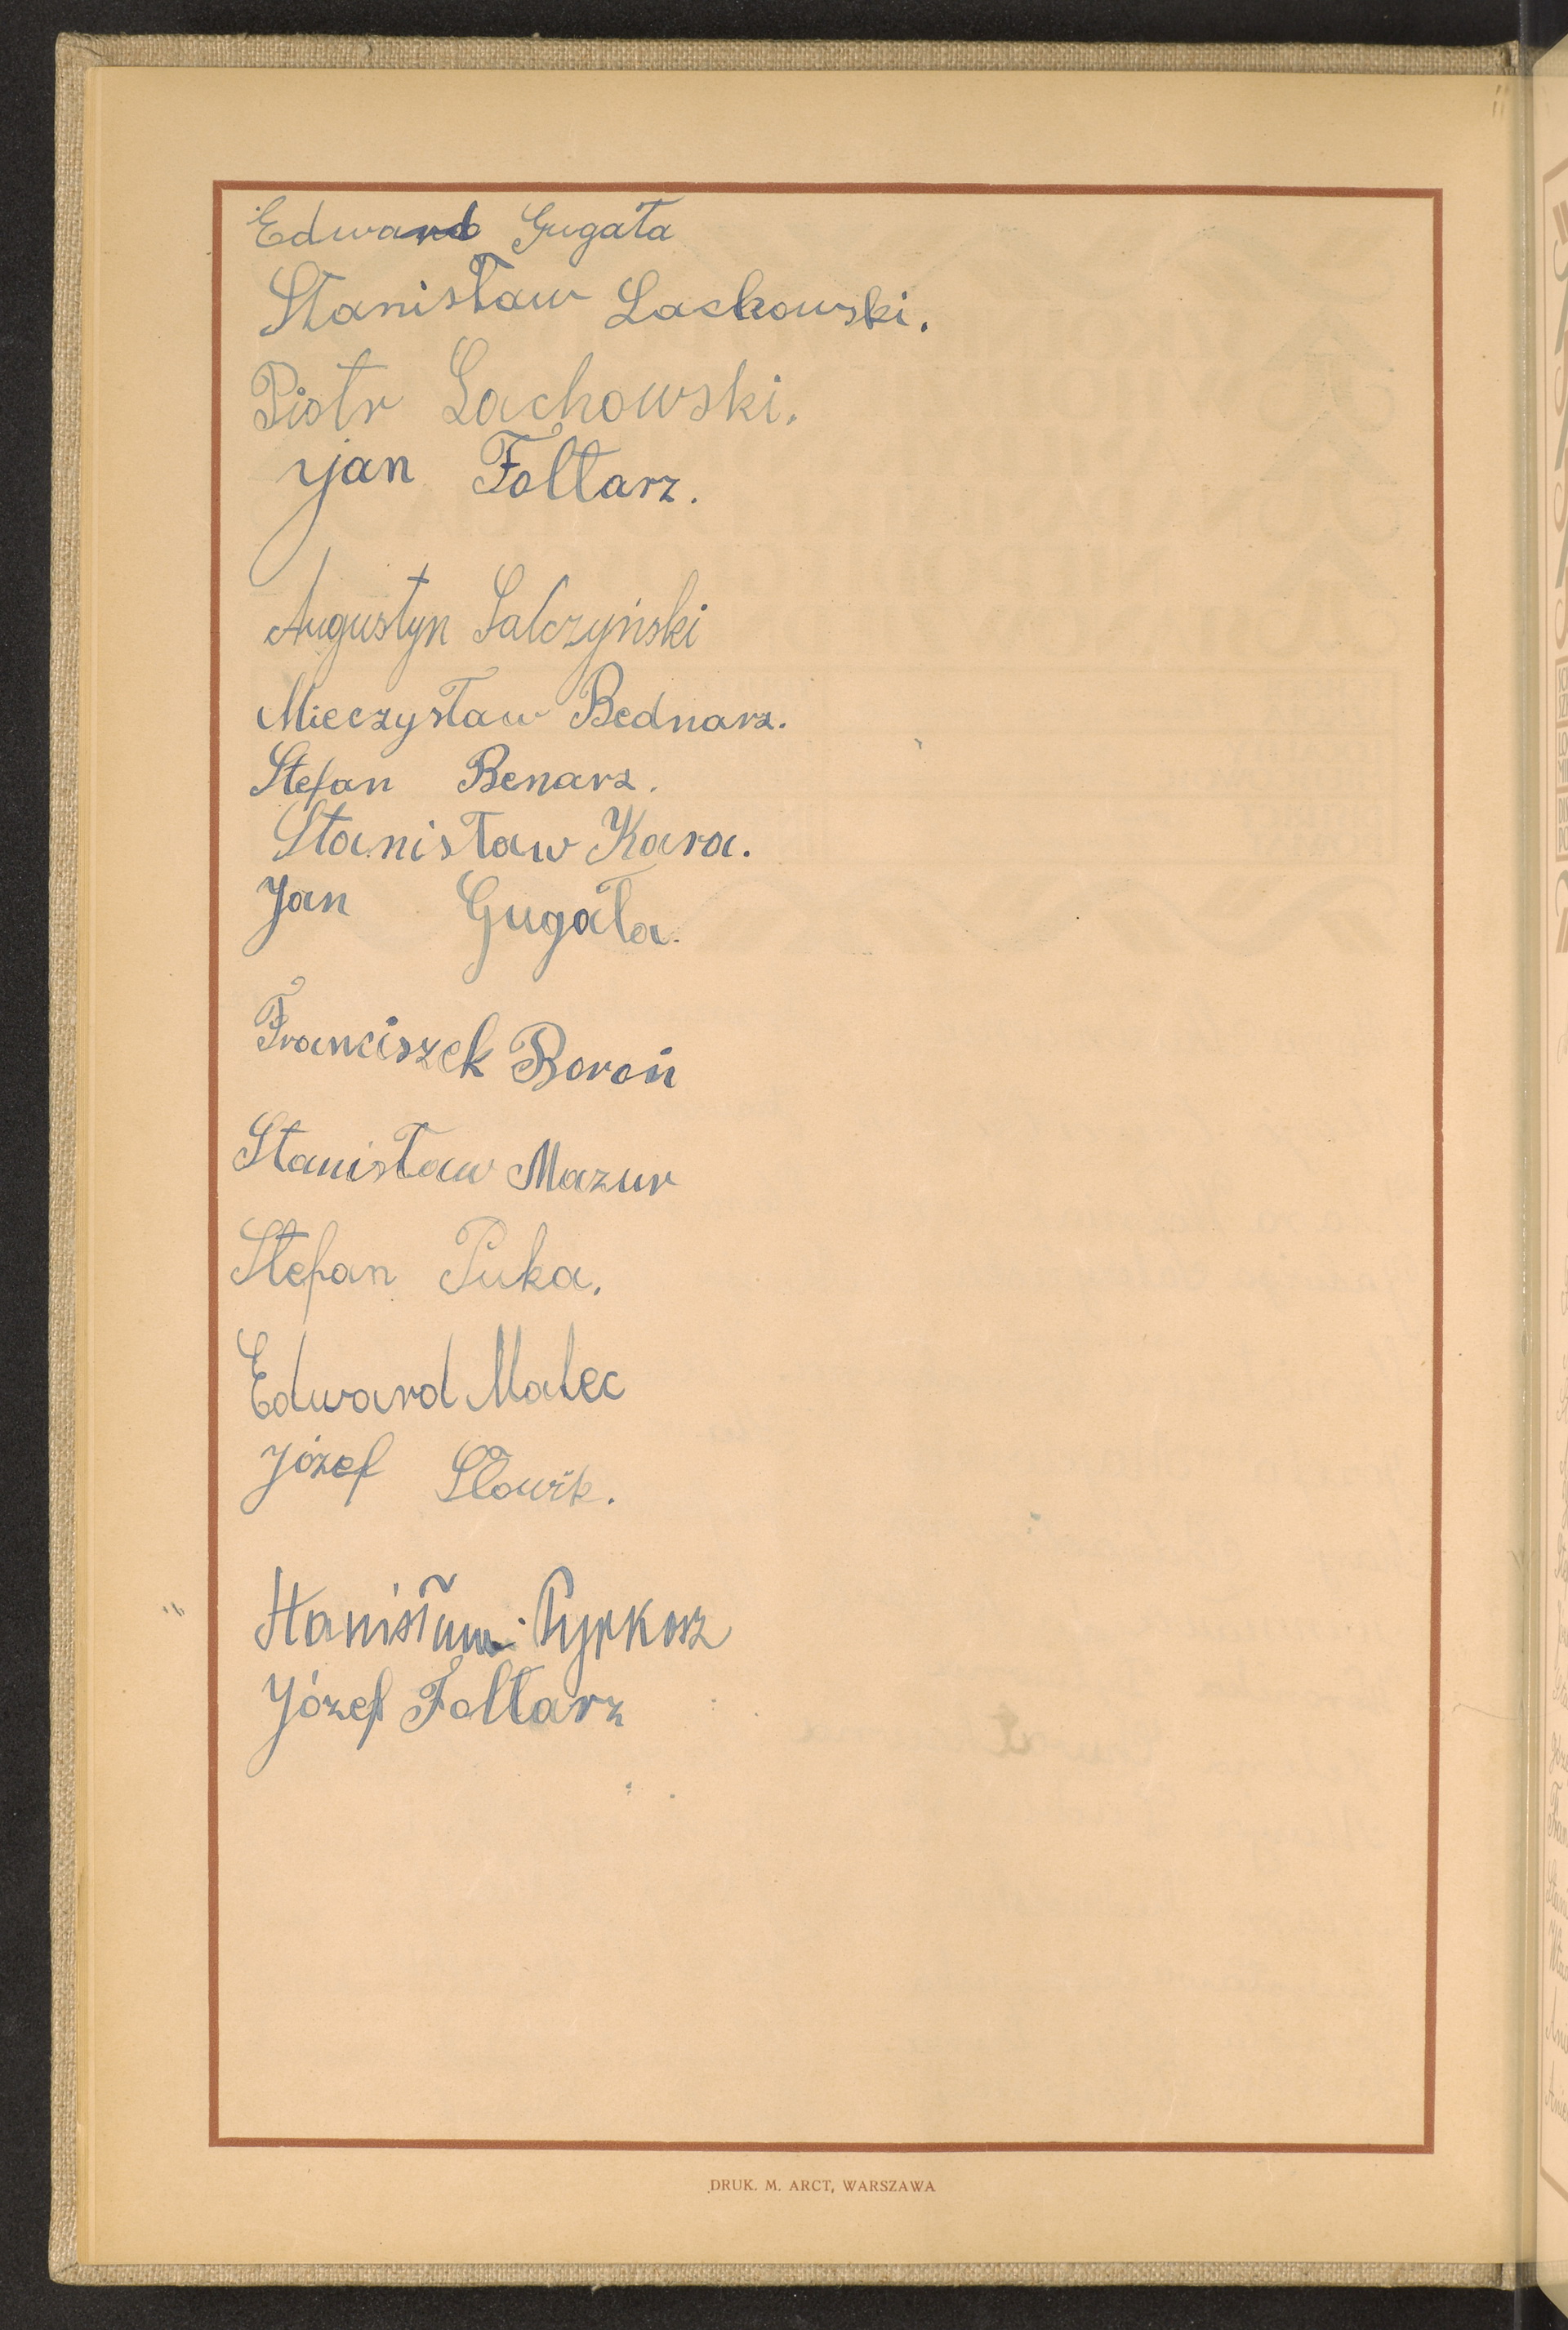 Edward Gugała
Stanisław Lackowski.
Piotr Lachowski.
Jan Foltarz.
Augustyn Salczyński
Mieczysław Bednarz.
Stefan Benarz.
Stanisław Kara.
Jan Gugała.
Franciszek Boroń
Stanisław Mazur
Stefan Puka.
Edward Malec
Józef Słowik.
Stanisław Pyrkosz
Józef Foltarz
DRUK. M. ARCT, WARSZAWA